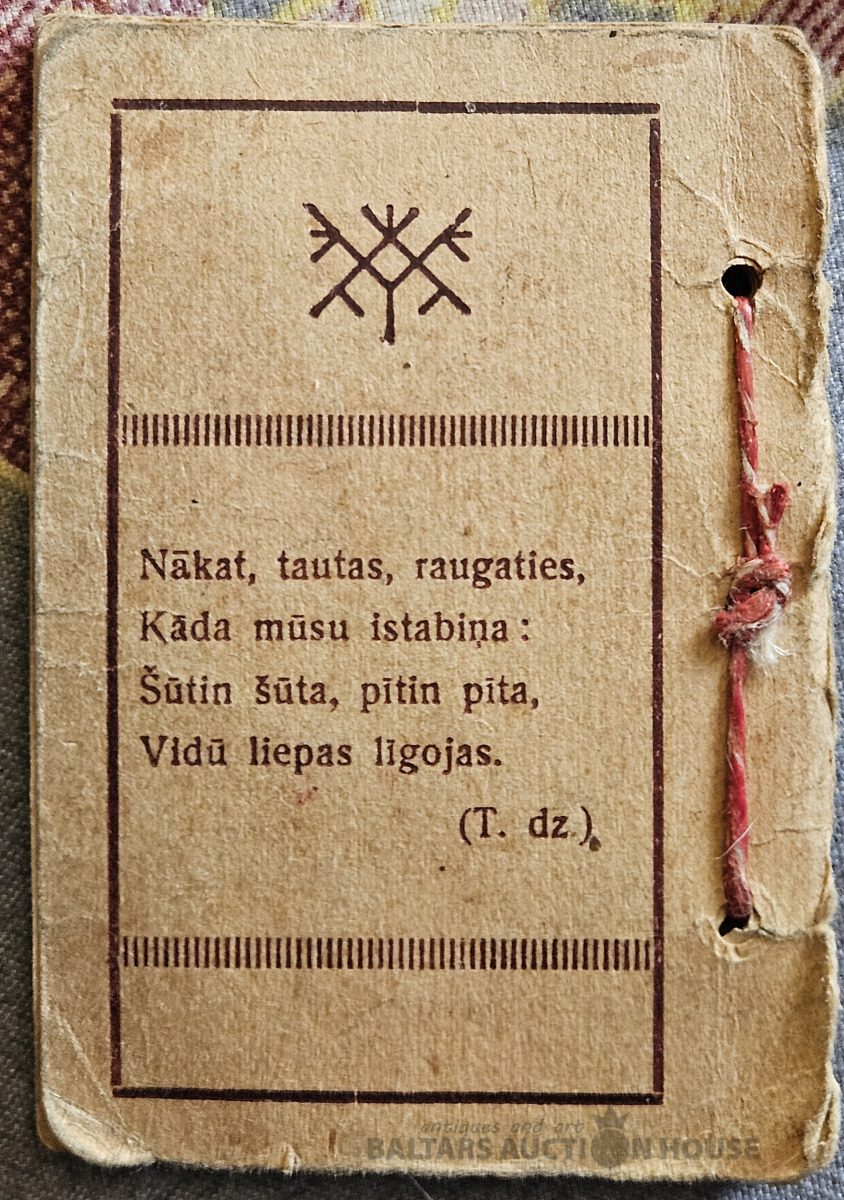 Nākat, tautas, raugaties,
Kāda mūsu istabiņa:
Šūtin šūta, pītin pīta,
Vidū liepas līgojas.
(T. dz.)
antiques and art
BALTARS AUCTION HOUSE